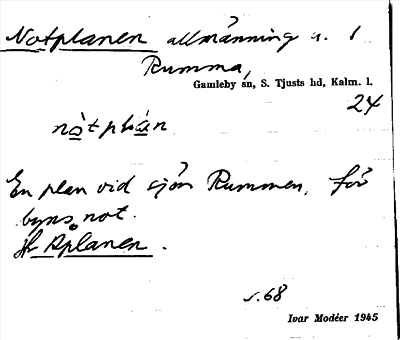 Notplanen allmänning u. 1
Rumma,
Gamleby sn, S. Tjusts hd, Kalm. l.
24
nòtplàn
En plan vid sjön Rummen, för
byns not.
jfr Åplanen.
s. 68
Ivar Modéer 1945